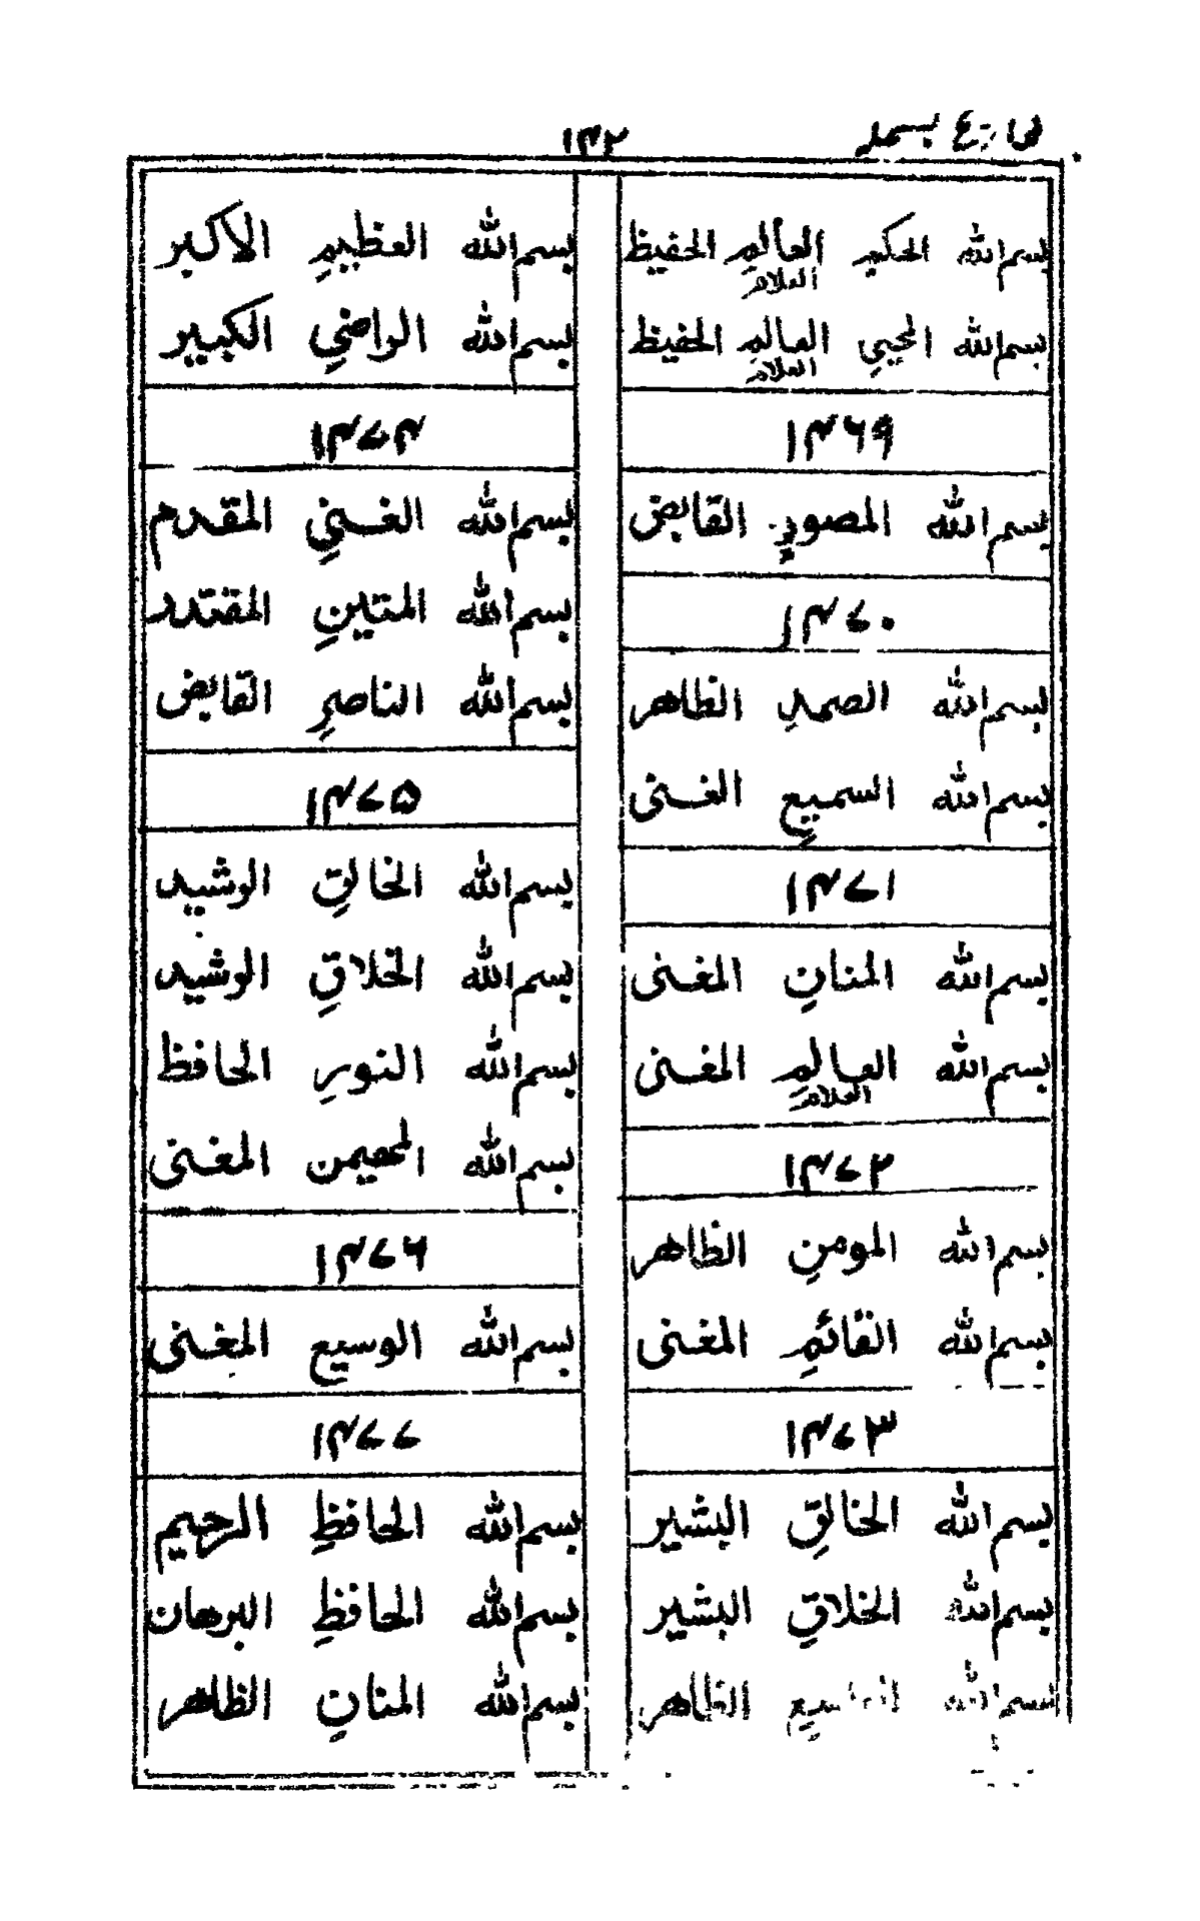 بسملہ
۱۴۲
بسم الله الحكيم العالم الحفيظ
العلام
بسم الله المحيي العالم الحفيظ
العلام
۱۴۶۹
بسم الله المصورِ القابض
۱۴۷۰
بسم الله الصمدِ الظاهر
بسم الله السميعِ الغنى
۱۴۷۱
بسم الله المنانِ المغنى
بسم الله العالمِ المغنى
العلام
۱۴۷۲
بسم الله المومنِ الظاهر
بسم الله القائمِ المغنى
۱۴۷۳
بسم الله الخالقِ البشير
بسم الله الخلاقِ البشير
بسم الله الوسيعِ الظاهر
بسم الله العظيمِ الاكبر
بسم الله الراضيِ الكبير
۱۴۷۴
بسم الله الغنيِ المقدم
بسم الله المتينِ المقتدر
بسم الله الناصرِ القابض
۱۴۷۵
بسم الله الخالقِ الرشيد
بسم الله الخلاقِ الرشيد
بسم الله النورِ الحافظ
بسم الله المهيمن المغنى
۱۴۷۶
بسم الله الوسيعِ المغنى
۱۴۷۷
بسم الله الحافظِ الرحيم
بسم الله الحافظِ البرهان
بسم الله المنانِ الظاهر